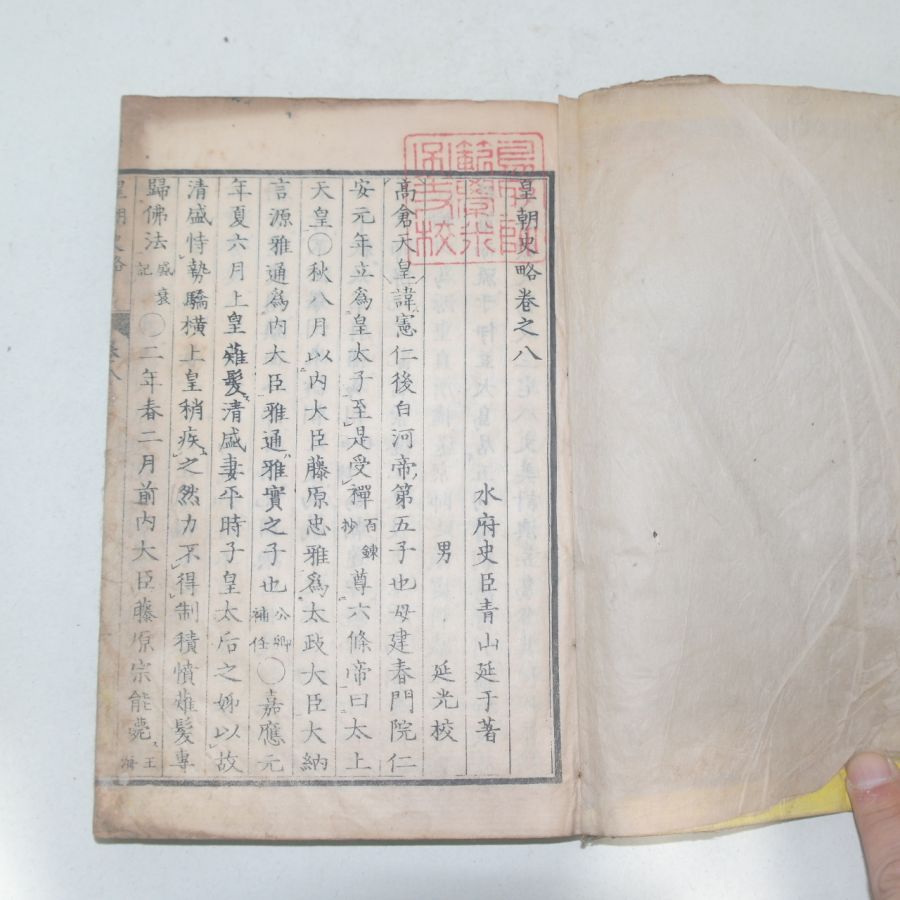 皇朝史略卷之八
水府史臣青山延于著
男 延光校
高倉天皇諱憲仁後白河帝第五子也母建春門院仁
安元年立爲皇太子至是受禪百鍊抄尊六條帝曰太上
天皇〇秋八月以内大臣藤原忠雅爲太政大臣大納
言源雅通爲内大臣雅通雅實之子也公卿補任〇嘉應元
年夏六月上皇薙髮清盛妻平時子皇太后之姊以故
清盛恃勢驕橫上皇稍疾之然力不得制積憤薙髮專
歸佛法盛衰記〇二年春二月前内大臣藤原宗能薨
皇朝史略 卷八